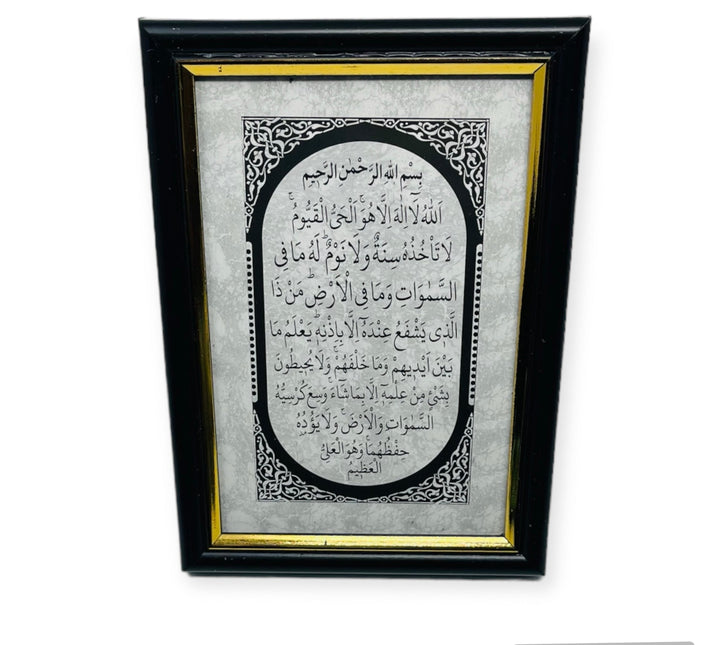 بِسْمِ اللهِ الرَّحْمٰنِ الرَّحِيْمِ
اَللهُ لَآ اِلٰهَ اِلَّا هُوَۚ اَلْحَيُّ الْقَيُّومُۚ
لَا تَأْخُذُهُ سِنَةٌ وَلَا نَوْمٌۜ لَهُ مَا فِى
السَّمٰوَاتِ وَمَا فِى الْاَرْضِۜ مَنْ ذَا
الَّذِى يَشْفَعُ عِنْدَهُٓ اِلَّا بِاِذْنِهٖۜ يَعْلَمُ مَا
بَيْنَ اَيْدِيهِمْ وَمَا خَلْفَهُمْۚ وَلَا يُحِيطُونَ
بِشَىْءٍ مِنْ عِلْمِهٖٓ اِلَّا بِمَا شَآءَۚ وَسِعَ كُرْسِيُّهُ
السَّمٰوَاتِ وَالْاَرْضَۚ وَلَا يَؤُدُهُ
حِفْظُهُمَاۚ وَهُوَ الْعَلِىُّ
الْعَظِيمُ